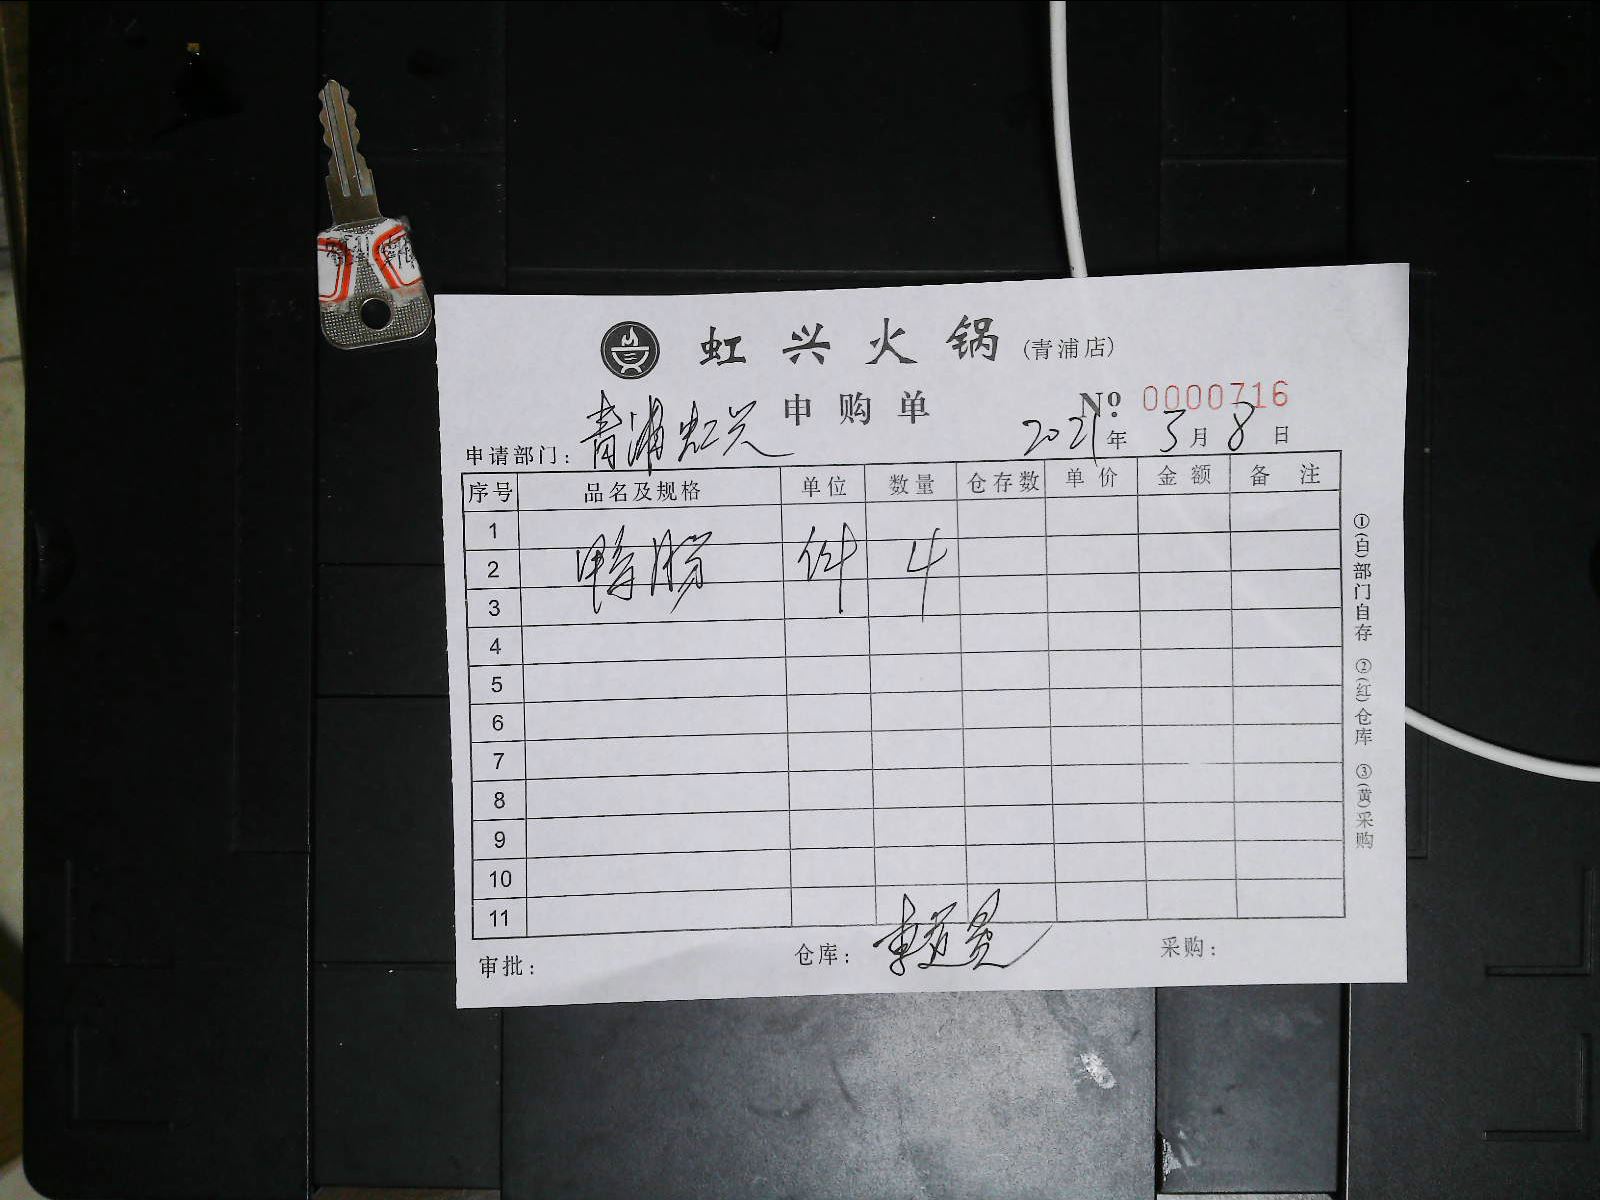 虹兴火锅(青浦店)
申购单 Nº 0000716
申请部门：青浦虹兴 2021年3月8日
序号 品名及规格 单位 数量 仓存数 单价 金额 备注
1
2 鸭肠 件 4
3
4
5
6
7
8
9
10
11
审批： 仓库： 采购：
①(白)部门自存 ②(红)仓库 ③(黄)采购